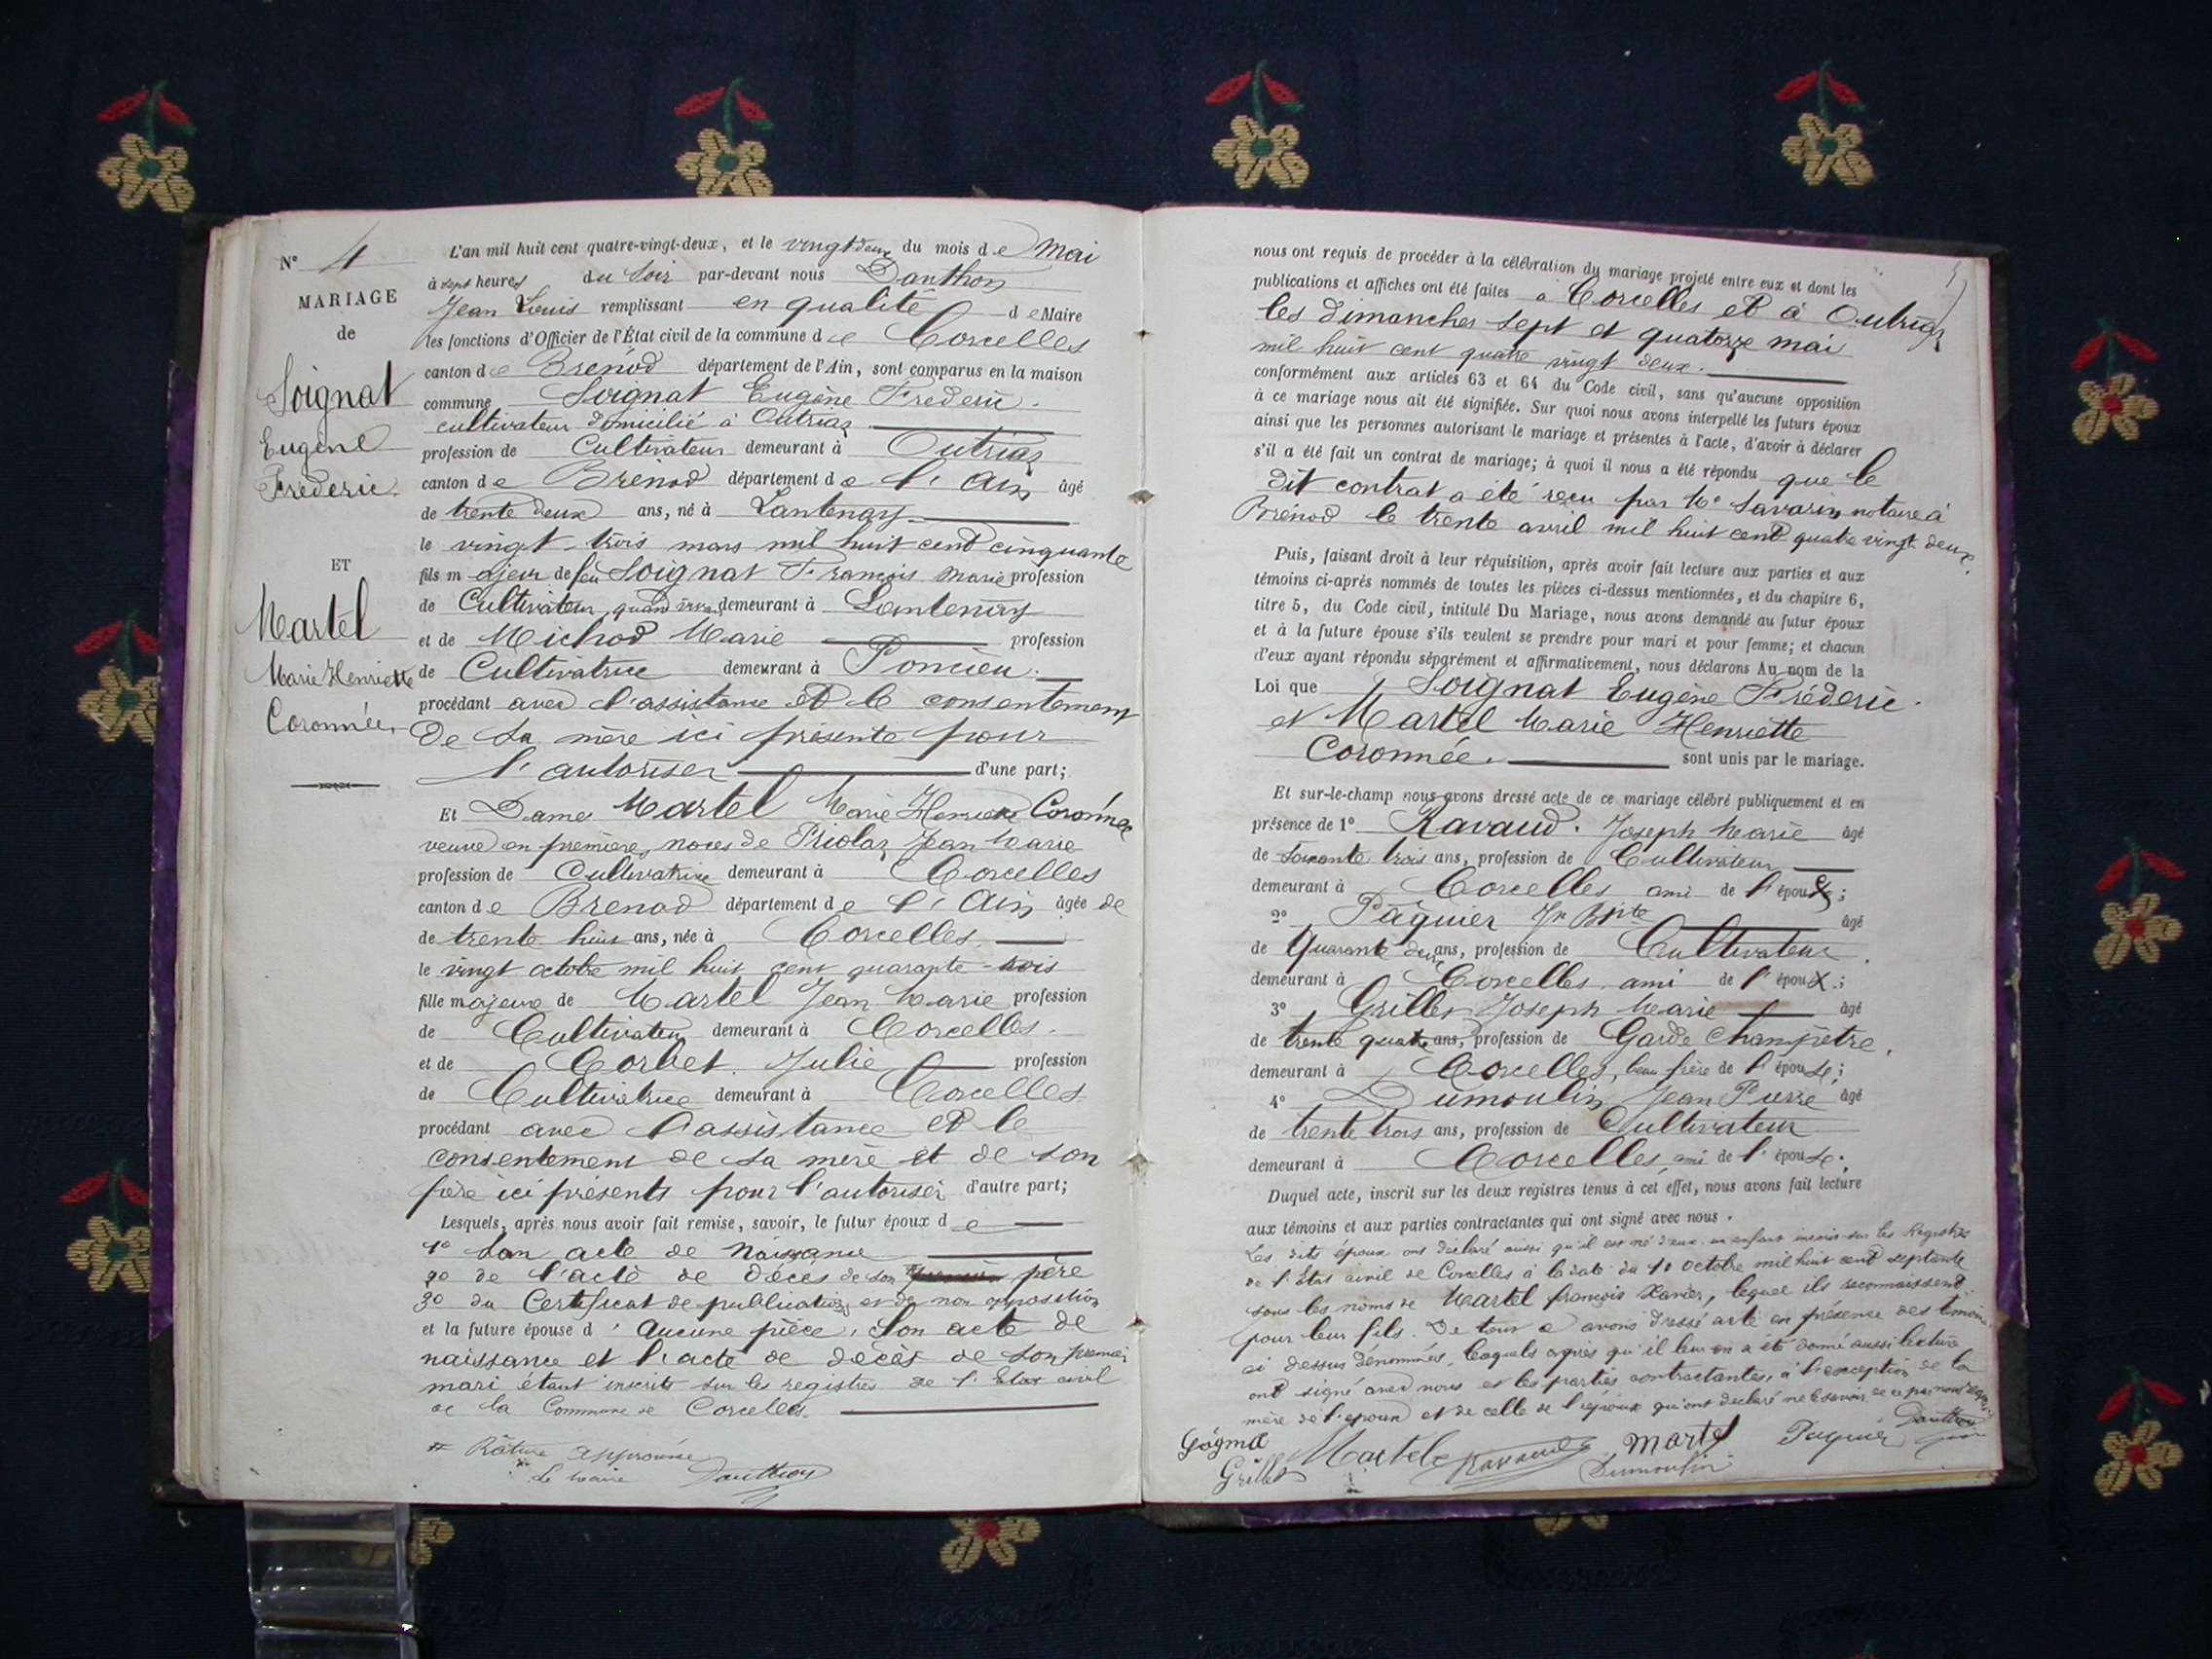 N° 4
MARIAGE
de
Soignat
Eugène
Frédéric.
ET
Martel
Marie Henriette
Coronnée.
L'an mil huit cent quatre-vingt-deux, et le vingt deux du mois de Mai
à sept heures du soir par-devant nous Danthon
Jean Louis remplissant en qualité de Maire
les fonctions d'Officier de l'État civil de la commune de Corcelles
canton de Brénod département de l'Ain, sont comparus en la maison
commune Soignat Eugène Frédéric.
cultivateur domicilié à Outriaz
profession de Cultivateur demeurant à Outriaz
canton de Brénod département de l'Ain âgé
de trente deux ans, né à Lantenay
le vingt-trois mars mil huit cent cinquante
fils majeur de feu Soignat François Marie profession
de Cultivateur, quand vivait demeurant à Lantenay
et de Michod Marie profession
de Cultivatrice demeurant à Poncieu.
procédant avec l'assistance et le consentement
de sa mère ici présente pour
l'autoriser d'une part;
Et Dame Martel Marie Henriette Coronnée
veuve en première noces de Priolaz Jean Marie
profession de Cultivatrice demeurant à Corcelles
canton de Brénod département de l'Ain âgée de
de trente huit ans, née à Corcelles,
le vingt octobre mil huit cent quarante-trois
fille majeure de Martel Jean Marie profession
de Cultivateur demeurant à Corcelles.
et de Corbet Julie profession
de Cultivatrice demeurant à Corcelles
procédant avec l'assistance et le
consentement de sa mère et de son
père ici présents pour l'autoriser d'autre part;
Lesquels, après nous avoir fait remise, savoir, le futur époux de
1° son acte de Naissance
2° de l'acte de décès de son père
3° du Certificat de publications et de non opposition
et la future épouse d'Aucune pièce, Son acte de
naissance et l'acte de décès de son premier
mari étant inscrits sur les registres de l'État civil
de la Commune de Corcelles.
Râture approuvée
Le maire Danthon
nous ont requis de procéder à la célébration du mariage projeté entre eux et dont les
publications et affiches ont été faites à Corcelles et à Outriaz
les dimanches sept et quatorze mai
mil huit cent quatre vingt deux.
conformément aux articles 63 et 64 du Code civil, sans qu'aucune opposition
à ce mariage nous ait été signifiée. Sur quoi nous avons interpellé les futurs époux
ainsi que les personnes autorisant le mariage et présentes à l'acte, d'avoir à déclarer
s'il a été fait un contrat de mariage; à quoi il nous a été répondu que le
dit contrat a été reçu par Me Savarin notaire à
Brénod le trente avril mil huit cent quatre vingt deux.
Puis, faisant droit à leur réquisition, après avoir fait lecture aux parties et aux
témoins ci-après nommés de toutes les pièces ci-dessus mentionnées, et du chapitre 6,
titre 5, du Code civil, intitulé Du Mariage, nous avons demandé au futur époux
et à la future épouse s'ils veulent se prendre pour mari et pour femme; et chacun
d'eux ayant répondu séparément et affirmativement, nous déclarons Au nom de la
Loi que Soignat Eugène Frédéric.
et Martel Marie Henriette
Coronnée. sont unis par le mariage.
Et sur-le-champ nous avons dressé acte de ce mariage célébré publiquement et en
présence de 1° Ravaud. Joseph Marie âgé
de soixante trois ans, profession de Cultivateur
demeurant à Corcelles ami de l'époux;
2° Pâquier Jn Bpte âgé
de Quarante deux ans, profession de Cultivateur.
demeurant à Corcelles. ami de l'époux.;
3° Grillet Joseph Marie âgé
de trente quatre ans, profession de Garde Champêtre.
demeurant à Corcelles, beau frère de l'épouse;
4° Dumoulin Jean Pierre âgé
de trente trois ans, profession de Cultivateur
demeurant à Corcelles ami de l'épouse.
Duquel acte, inscrit sur les deux registres tenus à cet effet, nous avons fait lecture
aux témoins et aux parties contractantes qui ont signé avec nous.
Les dits époux ont déclaré aussi qu'il est né d'eux un enfant inscrit sur les Registres
de l'État civil de Corcelles à la date du 10 octobre mil huit cent septante
sous les noms de Martel françois Xavier, lequel ils reconnaissent
pour leur fils. De tout ce avons dressé acte en présence des témoins
ci dessus dénommés, lesquels après qu'il leur en a été donné aussi lecture
ont signé avec nous et les parties contractantes, à l'exception de la
mère de l'époux et de celle de l'épouse qui ont déclaré ne le savoir de ce par nous
Martel Ravaud Martel Paquier Danthon
Grillet Dumoulin